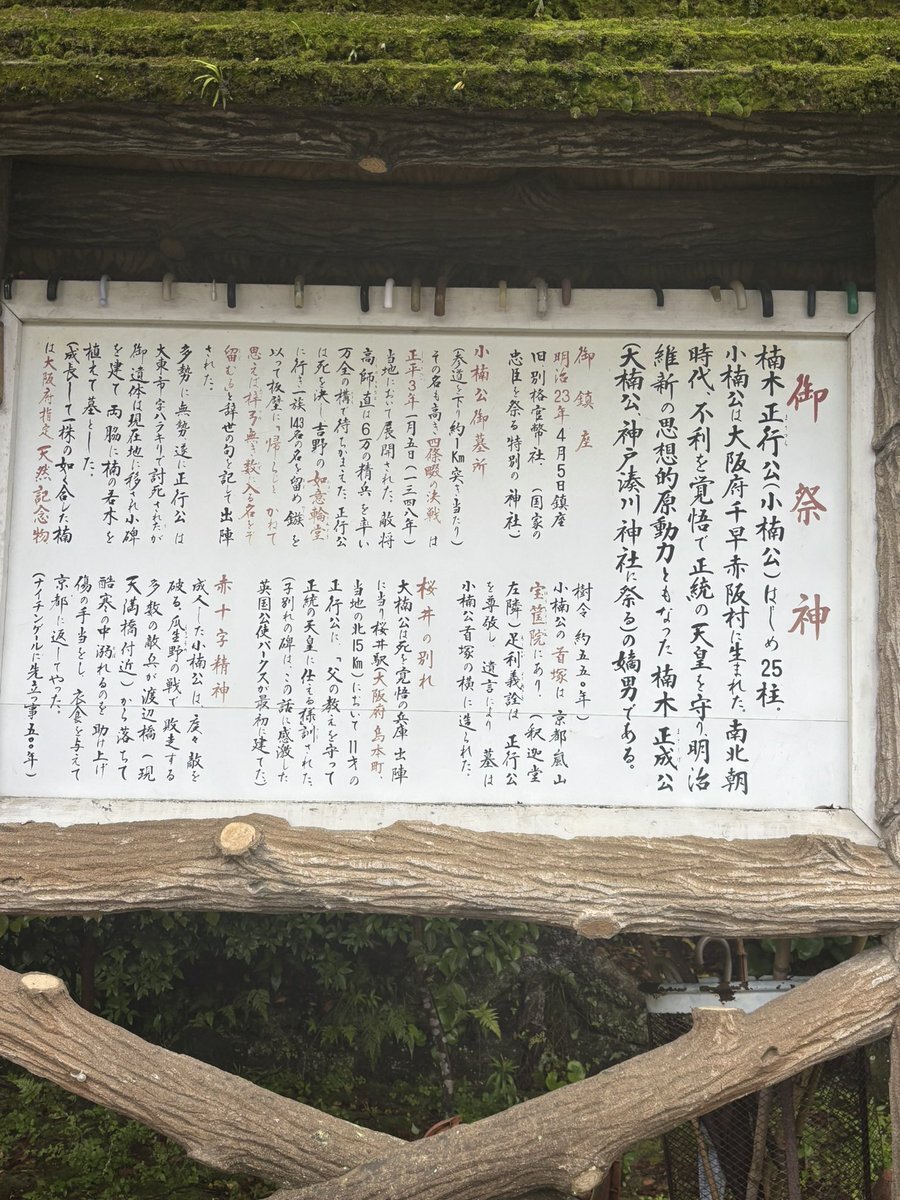 御祭神
楠木正行公(小楠公)はじめ25柱。
小楠公は大阪府千早赤阪村に生まれた。南北朝
時代、不利を覚悟で正統の天皇を守り明治
維新の思想的原動力ともなった楠木正成公
(大楠公、神戸湊川神社に祭る)の嫡男である。
御鎮座
明治23年4月5日鎮座
旧別格官幣社、(国家の
忠臣を祭る特別の神社)
小楠公御墓所
(参道を下り約1Km突き当たり)
その名も高き四條畷の決戦は
正平3年一月五日(一三四八年)
当地において展開された。敵将
高師直は6万の精兵を率い
万全の構で待ちかまえた。正行公
は死を決し吉野の如意輪堂
に行き一族143名の名を留め鏃を
以って板壁に「帰らじとかねて
思えば梓弓無き数に入る名をぞ
留むる」と辞世の句を記し出陣
された。
多勢に無勢、遂に正行公は
大東市字ハラキリで討死されたが
御遺体は現在地に移され小碑
を建て両脇に楠の若木を
植えて墓とした。
(成長して一株の如く合した楠
は大阪府指定天然記念物
樹令約五五〇年)
小楠公の首塚は京都嵐山
宝筐院にあり、(釈迦堂
左隣)足利義詮は正行公
を尊敬し、遺言により墓は
小楠公首塚の横に造られた。
桜井の別れ
大楠公は死を覚悟の兵庫出陣
に当り桜井駅(大阪府島本町、
当地の北15Km)において11才の
正行公に、「父の教えを守って
正統の天皇に仕える様訓された。
(子別れの碑は、この話に感激した
英国公使パークスが最初に建てた)
赤十字精神
成人した小楠公は、度々敵を
破る。瓜生野の戦で敗走する
多数の敵兵が渡辺橋(現
天満橋付近)から落ちて
酷寒の中溺れるのを助け上げ
傷の手当をし、衣食を与えて
京都に返してやった。
(ナイチンゲールに先立つ事五〇〇年)